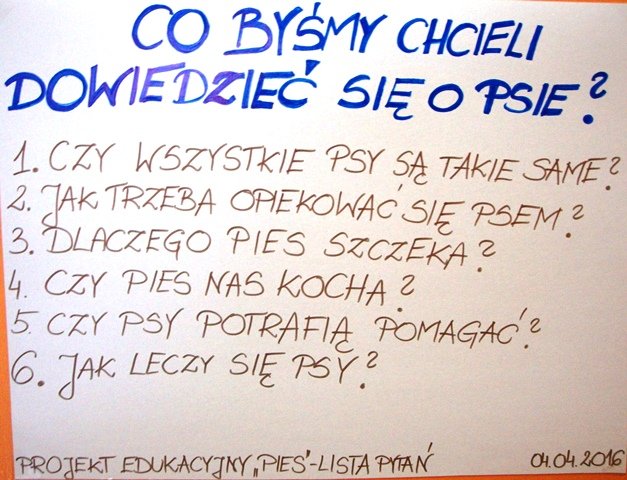 CO BYŚMY CHCIELI
DOWIEDZIEĆ SIĘ O PSIE?
1. CZY WSZYSTKIE PSY SĄ TAKIE SAME?
2. JAK TRZEBA OPIEKOWAĆ SIĘ PSEM?
3. DLACZEGO PIES SZCZEKA?
4. CZY PIES NAS KOCHA?
5. CZY PSY POTRAFIĄ POMAGAĆ?
6. JAK LECZY SIĘ PSY?
PROJEKT EDUKACYJNY „PIES”-LISTA PYTAŃ 04.04.2016